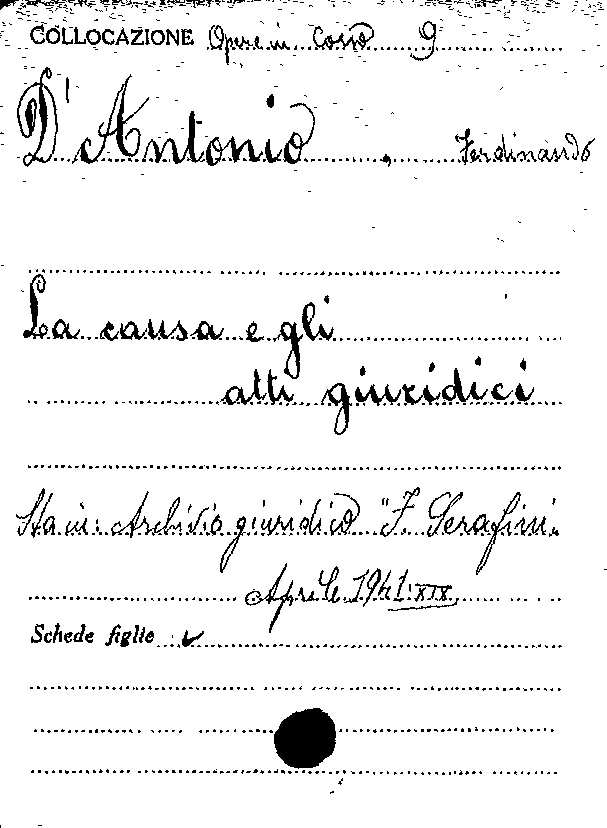 COLLOCAZIONE Opere in Corso 9
D'Antonio, Ferdinando
La causa e gli
atti giuridici
Sta in: Archivio giuridico "F. Serafini.
Aprile 1941 XIX
Schede figlie ✓